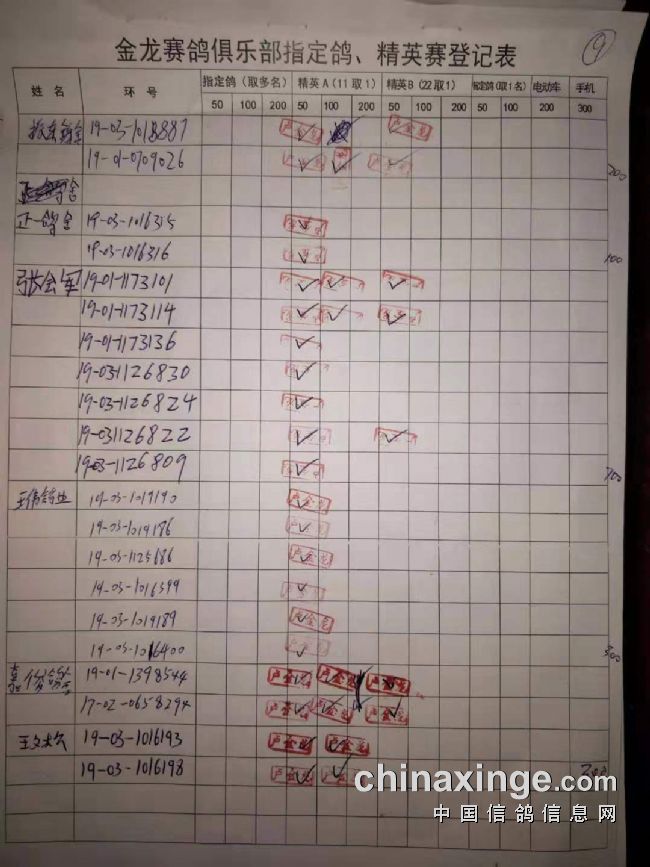 金龙赛鸽俱乐部指定鸽、精英赛登记表
9
姓名 环号 指定鸽（取多名） 精英A（11取1） 精英B（22取1） 指定鸽（取1名） 电动车 手机
50 100 200 50 100 200 50 100 200 50 100 200 200 300
19-03-1018887
19-01-0709026
200
正一鸽舍 19-03-1016315
19-03-1016316
100
张会军 19-01-1173101
19-01-1173114
19-01-1173136
19-03-1126830
19-03-1126824
19-031126822
19-03-1126809
700
王伟鸽业 19-03-1019190
19-03-1019186
19-03-1125686
19-03-1016399
19-03-1019189
19-03-1016400
300
19-01-1398544
17-02-0658294
19-03-1016193
19-03-1016198
200
chinaxinge.com
中国信鸽信息网